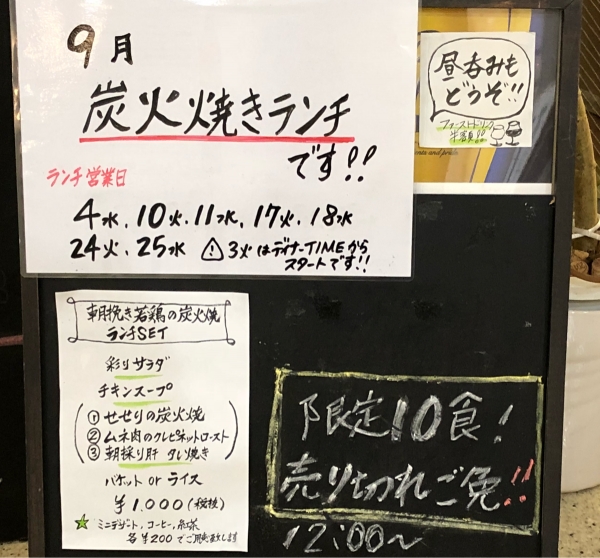 9月
炭火焼きランチ
です!!
ランチ営業日
4水、10火、11水、17火、18水
24火、25水 ⚠ 3火はディナーTIMEから
スタートです!!
昼呑みも
どうぞ!!
ファーストドリンク
半額!!
朝挽き若鶏の炭火焼
ランチSET
彩りサラダ
チキンスープ
① せせりの炭火焼
② ムネ肉のクレピネットロースト
③ 朝採り肝 タレ焼き
バケット or ライス
¥1,000 (税抜)
☆ ミニデザート、コーヒー、紅茶
各¥200でご用意致します
限定10食!
売り切れご免!!
12:00~